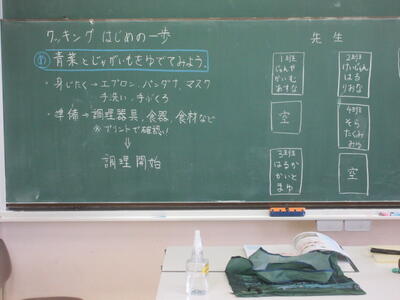 クッキング はじめの一歩
め 青菜とじゃがいもをゆでてみよう。
・身じたく→エプロン、バンダナ、マスク
手洗い、手ぶくろ
・準備→調理器具、食器、食材など
※プリントで確認!
↓
調理開始
先生
1班
じゅんや
かいむ
あすな
2班
けいじゅん
はる
りおな
空
4班
そら
たくみ
みゆ
3班
はるか
かいと
まゆ
空